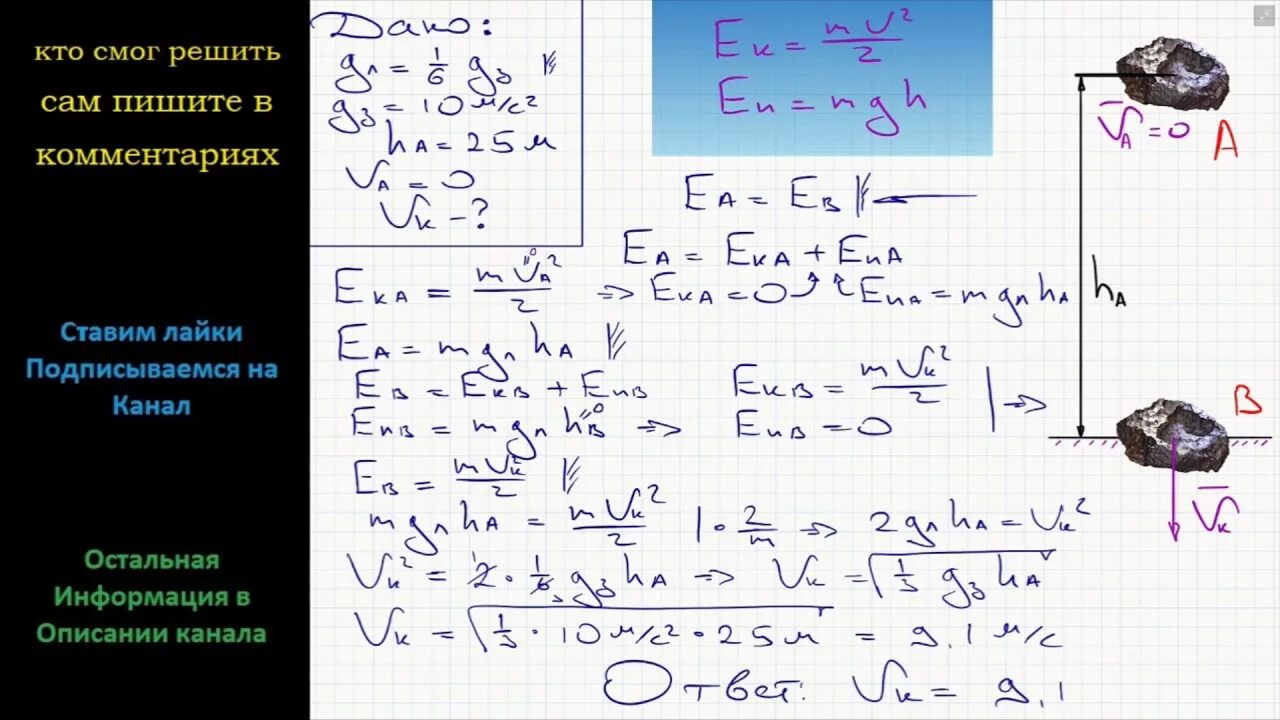 кто смог решить
сам пишите в
комментариях
Ставим лайки
Подписываемся на
Канал
Остальная
Информация в
Описании канала
Дано:
gл = 1/6 gз
gз = 10 м/с²
hA = 25 м
VA = 0
Vк - ?
Eк = mV²/2
Eп = mgh
EA = EB
EA = EкA + EпA
EкA = mVA²/2 => EкA = 0 EпA = mgлhA
=0
EA = mgлhA
EB = EкB + EпB EкB = mVк²/2
EпB = mgлhB => EпB = 0 =>
=0
EB = mVк²/2
mgлhA = mVк²/2 | · 2/m => 2gлhA = Vк²
Vк² = 2 · 1/6 gзhA => Vк = √(1/3 gзhA)
1 3
Vк = √(1/3 · 10 м/с² · 25 м) = 9,1 м/с
Ответ: Vк = 9,1
VA = 0
A
hA
B
Vк